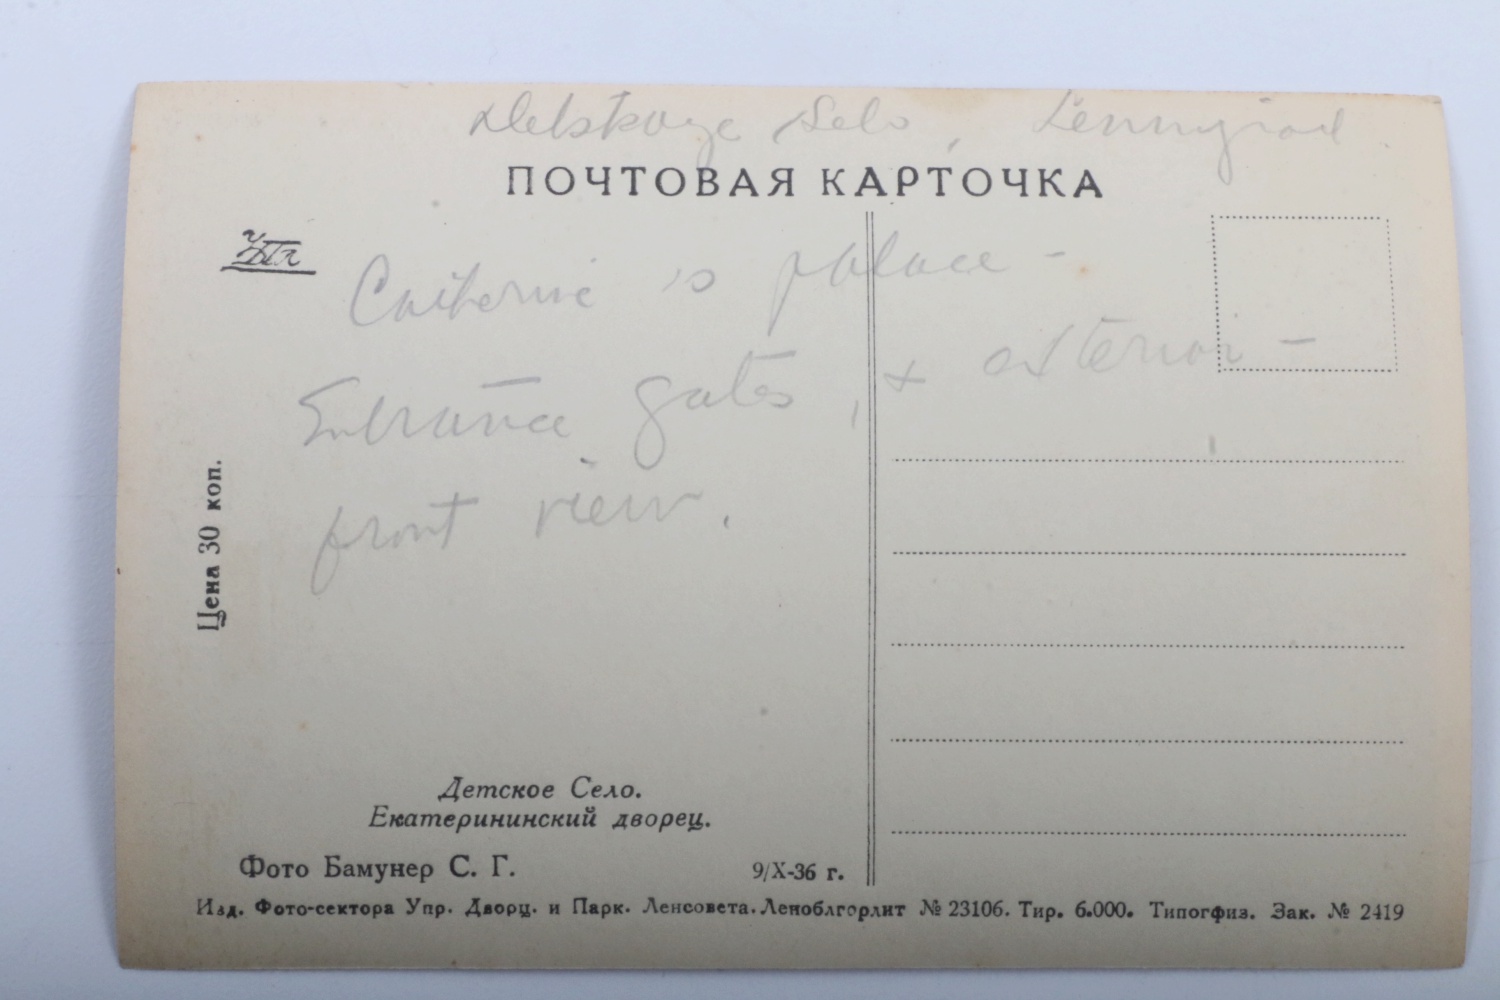 Detskoye Selo, Leningrad
ПОЧТОВАЯ КАРТОЧКА
Catherine's palace -
Entrance gates, & exterior -
front view.
Цена 30 коп.
Детское Село.
Екатерининский дворец.
Фото Бамунер С. Г.
9/X-36 г.
Изд. Фото-сектора Упр. Дворц. и Парк. Ленсовета. Леноблгорлит № 23106. Тир. 6.000. Типогфиз. Зак. № 2419